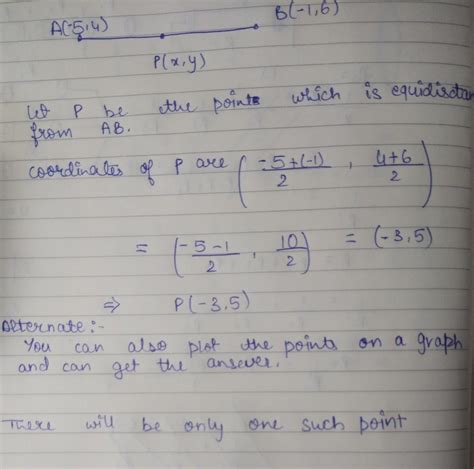 A(-5,4)
B(-1,6)
P(x,y)
let P be the point which is equidistan
from AB.
coordinates of P are ( -5+(-1)/2 , 4+6/2 )
= ( -5-1/2 , 10/2 ) = (-3,5)
⇒ P(-3,5)
Alternate:-
You can also plot the points on a graph
and can get the answer.
There will be only one such point